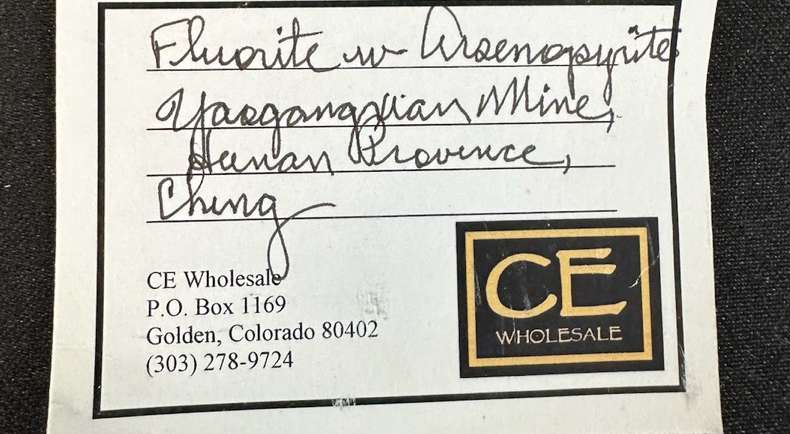 Fluorite w Arsenopyrite
Yaogangxian Mine,
Hunan Province,
China
CE Wholesale
P.O. Box 1169
Golden, Colorado 80402
(303) 278-9724
CE
WHOLESALE